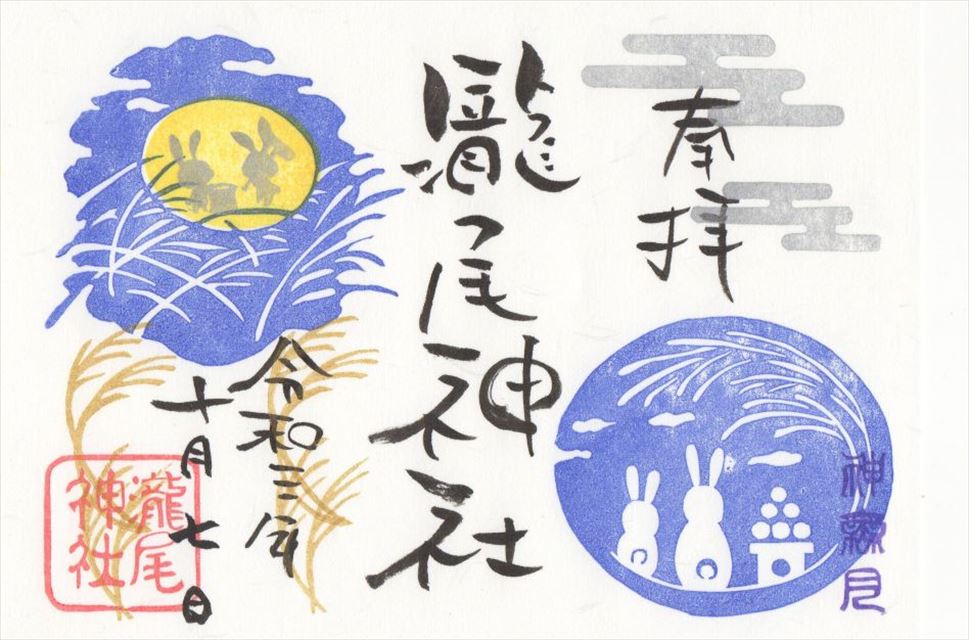 奉拝
神無月
瀧尾神社
令和三年
十月七日
瀧尾
神社